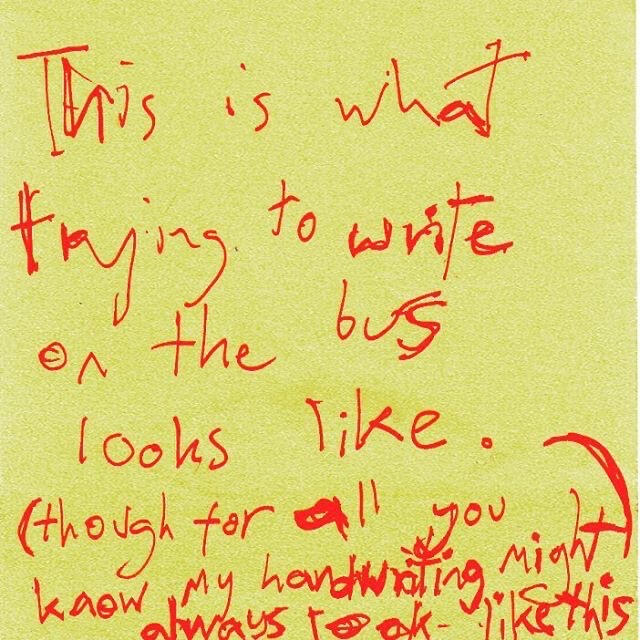 This is what
trying to write
on the bus
looks like.
(though for all you
know my handwriting might
always look like this)